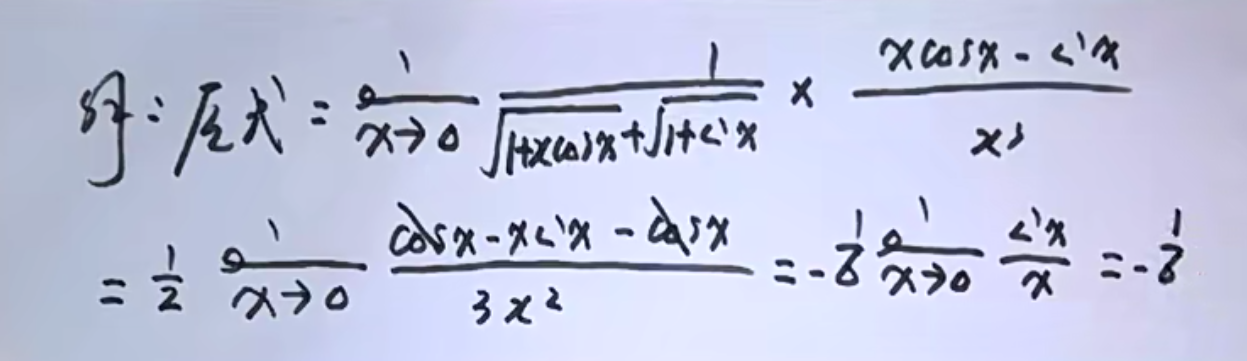 解:原式 = lim_{x→0} \frac{1}{\sqrt{1+x\cos x}+\sqrt{1+\sin x}} × \frac{x\cos x - \sin x}{x^3}
= \frac{1}{2} lim_{x→0} \frac{\cos x - x\sin x - \cos x}{3x^2} = -\frac{1}{6} lim_{x→0} \frac{\sin x}{x} = -\frac{1}{6}